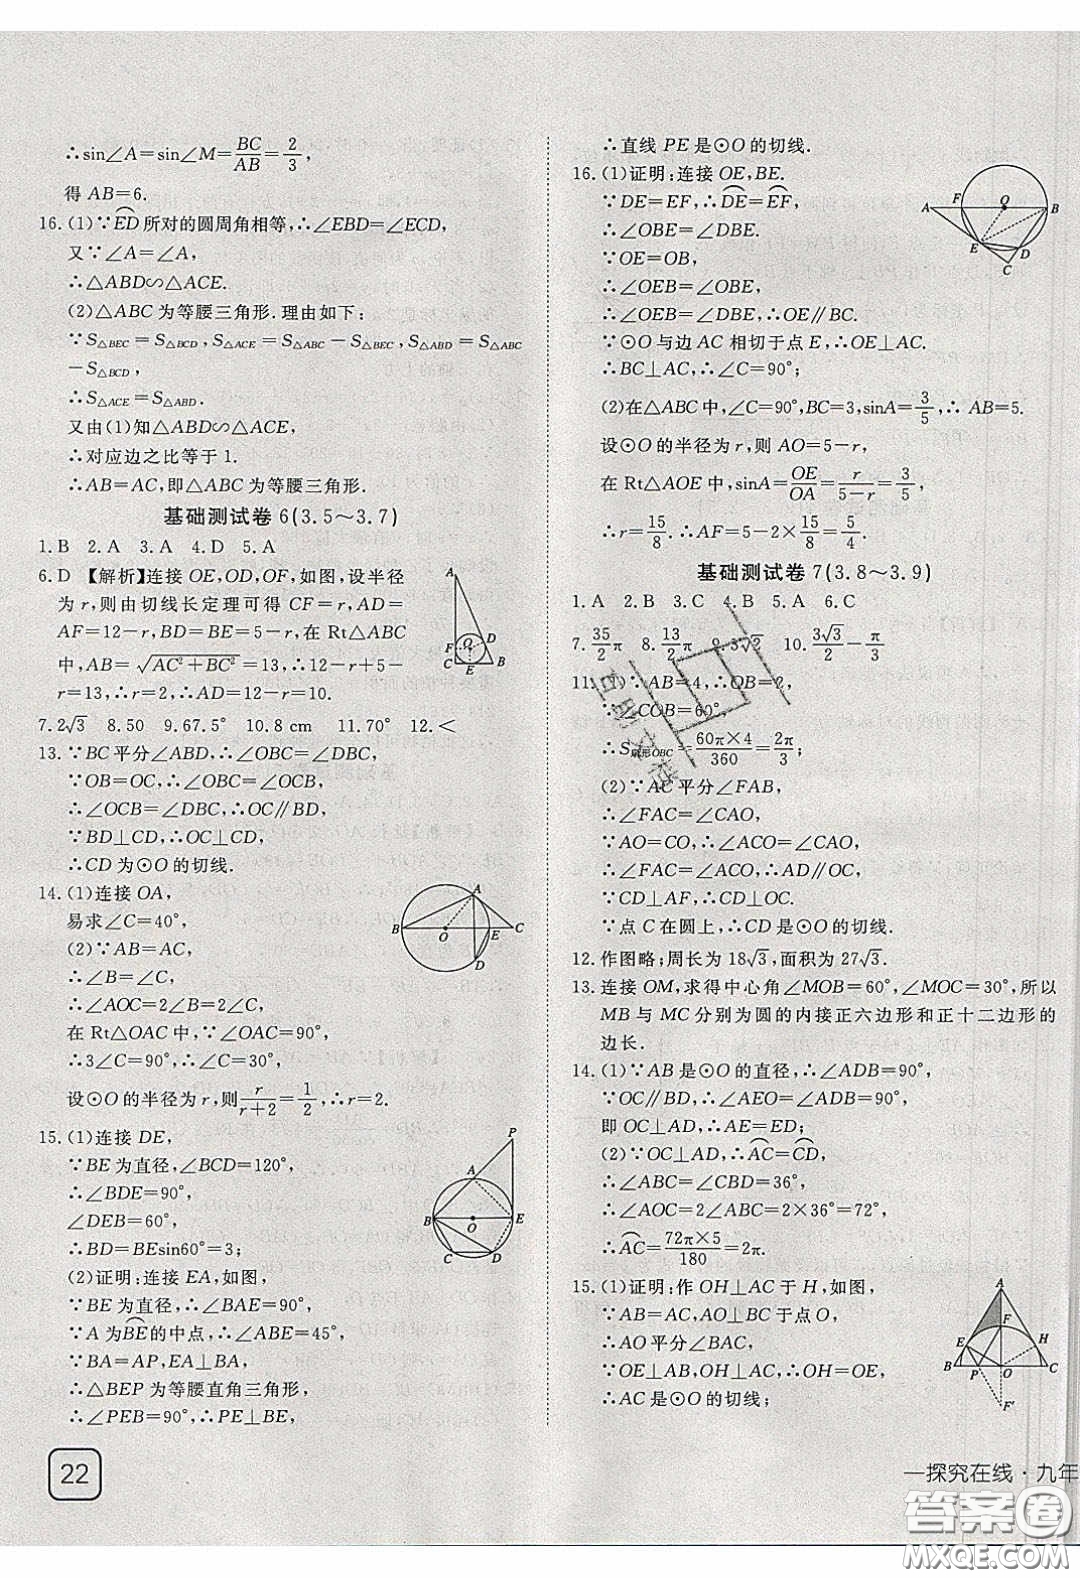 ∴sin∠A=sin∠M=BC/AB=2/3,
得 AB=6.
16.(1)∵ED⌒所对的圆周角相等,∴∠EBD=∠ECD,
又∵∠A=∠A,
∴△ABD∽△ACE.
(2)△ABC为等腰三角形.理由如下:
∵S△BEC=S△BCD,S△ACE=S△ABC-S△BEC,S△ABD=S△ABC
-S△BCD,
∴S△ACE=S△ABD.
又由(1)知△ABD∽△ACE,
∴对应边之比等于1.
∴AB=AC,即△ABC为等腰三角形.
基础测试卷6(3.5~3.7)
1.B 2.A 3.A 4.D 5.A
6.D 【解析】连接OE,OD,OF,如图,设半径
为r,则由切线长定理可得CF=r,AD=
AF=12-r,BD=BE=5-r,在Rt△ABC
中,AB=√(AC²+BC²)=13,∴12-r+5-
r=13,∴r=2,∴AD=12-r=10.
A
O
D
C
E
B
7.2√3 8.50 9.67.5° 10.8 cm 11.70° 12.<
13.∵BC平分∠ABD,∴∠OBC=∠DBC,
∵OB=OC,∴∠OBC=∠OCB,
∴∠OCB=∠DBC,∴OC∥BD,
∵BD⊥CD,∴OC⊥CD,
∴CD为⊙O的切线.
14.(1)连接OA,
易求∠C=40°,
(2)∵AB=AC,
∴∠B=∠C,
∴∠AOC=2∠B=2∠C,
在Rt△OAC中,∵∠OAC=90°,
∴3∠C=90°,∴∠C=30°,
设⊙O的半径为r,则r/(r+2)=1/2,∴r=2.
A
B
O
E
C
D
15.(1)连接DE,
∵BE为直径,∠BCD=120°,
∴∠BDE=90°,
∠DEB=60°,
∴BD=BEsin60°=3;
(2)证明:连接EA,如图,
∵BE为直径,∴∠BAE=90°,
∵A为BE⌒的中点,∴∠ABE=45°,
∵BA=AP,EA⊥BA,
∴△BEP为等腰直角三角形,
∴∠PEB=90°,∴PE⊥BE,
P
A
B
O
E
C
D
22
∴直线PE是⊙O的切线.
16.(1)证明:连接OE,BE.
∵DE=EF,∴DE⌒=EF⌒,
∴∠OBE=∠DBE,
∵OE=OB,
∴∠OEB=∠OBE,
∴∠OEB=∠DBE,∴OE∥BC.
∵⊙O与边AC相切于点E,∴OE⊥AC.
∴BC⊥AC,∴∠C=90°;
(2)在△ABC中,∠C=90°,BC=3,sinA=3/5,∴AB=5.
设⊙O的半径为r,则AO=5-r,
在Rt△AOE中,sinA=OE/OA=r/(5-r)=3/5,
∴r=15/8.∴AF=5-2×15/8=5/4.
A
F
O
B
E
D
C
基础测试卷7(3.8~3.9)
1.A 2.B 3.C 4.B 5.A 6.C
7.35/2π 8.13/2π 9.3√3 10.3√3/2-π/3
11.(1)∵AB=4,∴OB=2,
∵∠COB=60°,
∴S扇形OBC=60π×4/360=2π/3
(2)∵AC平分∠FAB,
∴∠FAC=∠CAO,
∵AO=CO,∴∠ACO=∠CAO,
∴∠FAC=∠ACO,∴AD∥OC,
∵CD⊥AF,∴CD⊥OC.
∵点C在圆上,∴CD是⊙O的切线.
12.作图略;周长为18√3,面积为27√3.
13.连接OM,求得中心角∠MOB=60°,∠MOC=30°,所以
MB与MC分别为圆的内接正六边形和正十二边形的
边长.
14.(1)∵AB是⊙O的直径,∴∠ADB=90°,
∵OC∥BD,∴∠AEO=∠ADB=90°,
即OC⊥AD,∴AE=ED;
(2)∵OC⊥AD,∴AC⌒=CD⌒,
∴∠ABC=∠CBD=36°,
∴∠AOC=2∠ABC=2×36°=72°,
∴AC⌒=72π×5/180=2π.
15.(1)证明:作OH⊥AC于H,如图,
∵AB=AC,AO⊥BC于点O,
∴AO平分∠BAC,
∵OE⊥AB,OH⊥AC,∴OH=OE,
∴AC是⊙O的切线.
A
F
E
H
B
P
O
C
F′
—探究在线·九年
答案卷
MXQE.COM